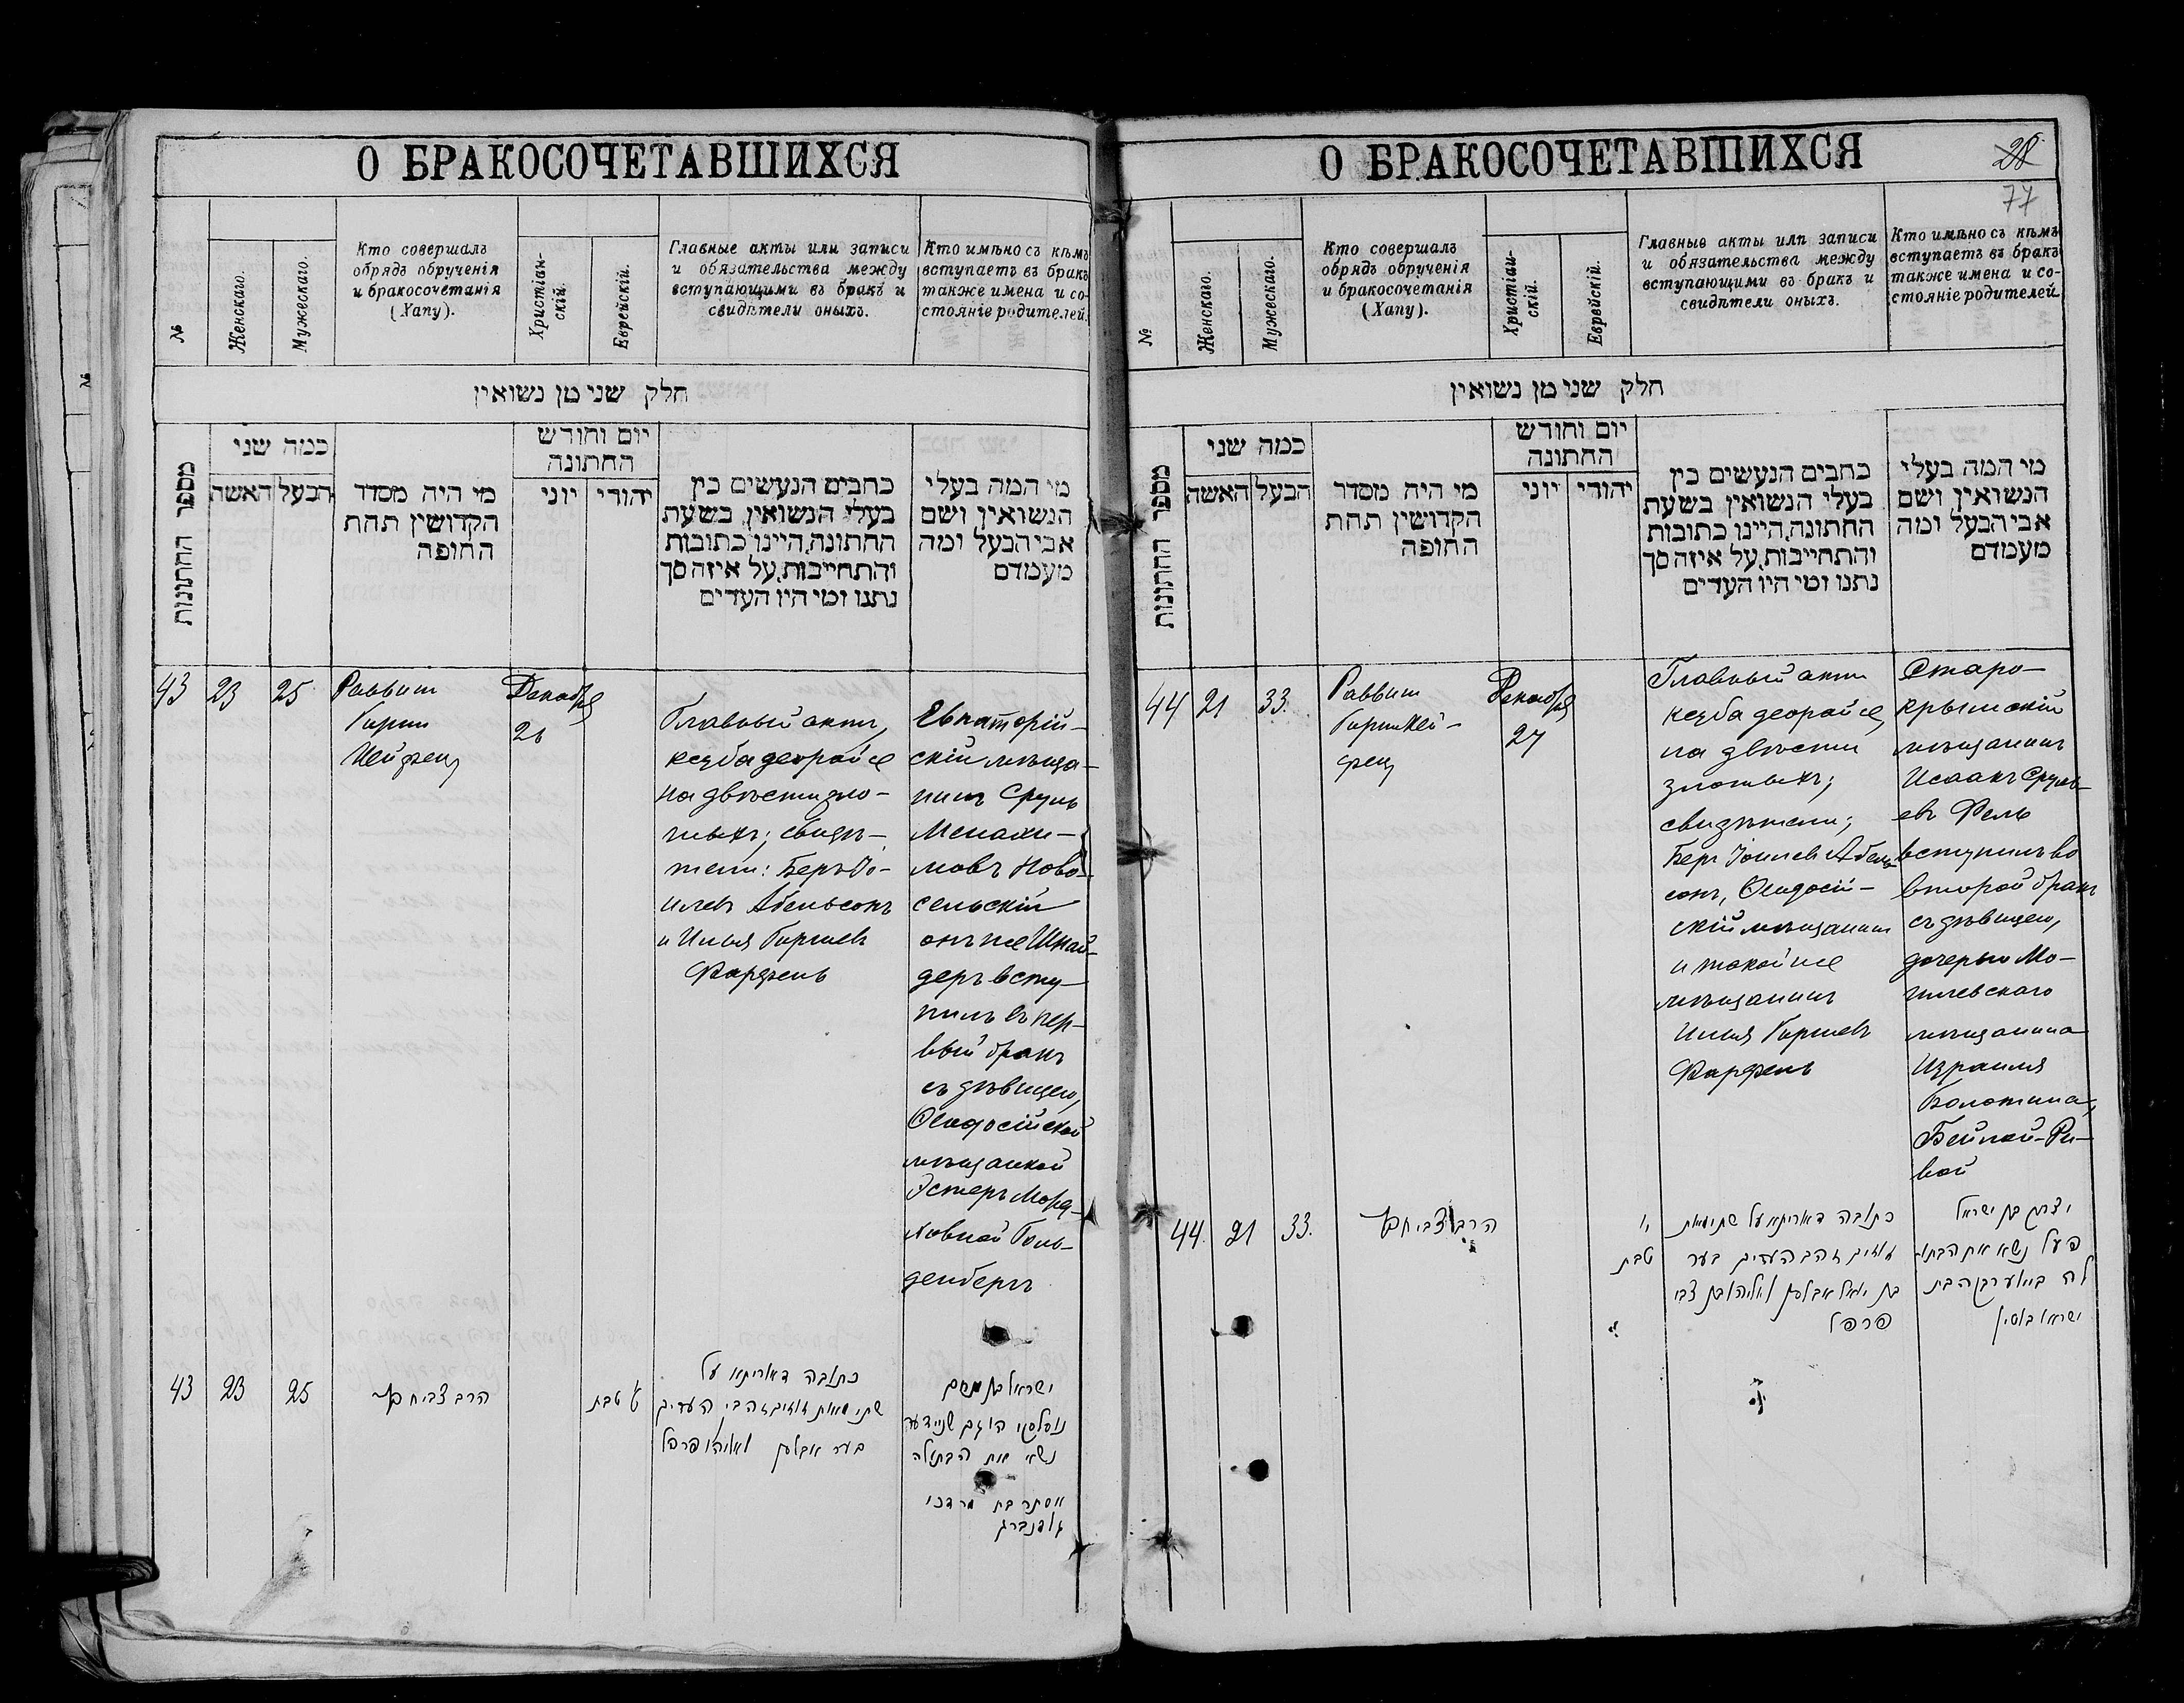 О БРАКОСОЧЕТАВШИХСЯ
№
Женскаго.
Мужескаго.
Кто совершалъ
обрядъ обрученія
и бракосочетанія
(Хапу).
Христіан-
скій.
Еврейскій.
Главные акты или записи
и обязательства между
вступающими въ бракъ и
свидѣтели оныхъ.
Кто имѣно съ кѣмъ
вступаетъ въ бракъ
также имена и со-
стояніе родителей.
חלק שני מן נשואין
מספר החתונות
כמה שני
האשה
הבעל
מי היה מסדר
הקדושין תחת
החופה
יום וחודש
החתונה
יוני
יהודי
כתבים הנעשים בין
בעלי הנשואין בשעת
החתונה, היינו כתובות
והתחייבות, על איזה סך
נתנו ומי היו העדים
מי המה בעלי
הנשואין ושם
אבי הבעל ומה
מעמדם
43
23
25
Раввинъ
Гирш
Хейфец
Декабря
26
Главный актъ,
ксуба деорайсе
на двѣсти зло-
тыхъ; свидѣ-
тели: Беръ Іо-
илевъ Абельсонъ
и Илья Гиршевъ
Фарфель
Евпаторій-
скій мѣща-
нинъ Сруль
Менахи-
мовъ Ново-
сельскій
онъ же Шнай-
деръ всту-
пилъ въ пер-
вый бракъ
съ дѣвицею,
Ѳеодосійской
мѣщанкой
Эстеръ Морд-
ховной Голь-
денбергъ
43
23
25
הרב צבי חפץ
ט טבת
כתובה דאוריתא על
שתי מאות זוזים זהבי העדים
בער אבלסון ואליהו פרפל
ישראל בן מנחם
נוסלסקי הוא גם שניידער
נשא את הבתולה
אסתר בת מרדכי
גולדנברג
О БРАКОСОЧЕТАВШИХСЯ
28
77
№
Женскаго.
Мужескаго.
Кто совершалъ
обрядъ обрученія
и бракосочетанія
(Хапу).
Христіан-
скій.
Еврейскій.
Главные акты или записи
и обязательства между
вступающими въ бракъ и
свидѣтели оныхъ.
Кто имѣно съ кѣмъ
вступаетъ въ бракъ
также имена и со-
стояніе родителей.
חלק שני מן נשואין
מספר החתונות
כמה שני
האשה
הבעל
מי היה מסדר
הקדושין תחת
החופה
יום וחודש
החתונה
יוני
יהודי
כתבים הנעשים בין
בעלי הנשואין בשעת
החתונה, היינו כתובות
והתחייבות, על איזה סך
נתנו ומי היו העדים
מי המה בעלי
הנשואין ושם
אבי הבעל ומה
מעמדם
44
21
33.
Раввинъ
Гирш Хей-
фец
Декабря
27
Главный актъ
ксуба деорайсе,
на двѣсти
злотыхъ;
свидѣтели;
Беръ Іоилев Абель-
сонъ, Ѳеодосій-
скій мѣщанинъ
и такой же
мѣщанинъ
Илья Гиршевъ
Фарфель
Старо-
крымскій
мѣщанинъ
Исаакъ Сруль-
евъ Фель
вступилъ во
второй бракъ
съ дѣвицею,
дочерью Мо-
гилевскаго
мѣщанина
Израиля
Болотина,
Бейлой-Ри-
вой
44.
21
33.
הרב צבי חפץ
י
טבת
כתובה דאוריתא על שתי מאות
זוזים זהב העדים בער
בן יואל אבלסון ואליהו בן צבי
פרפל
יצחק בן ישראל
פעל נשא את הבתו
לה ביילע רבקה בת
ישראל